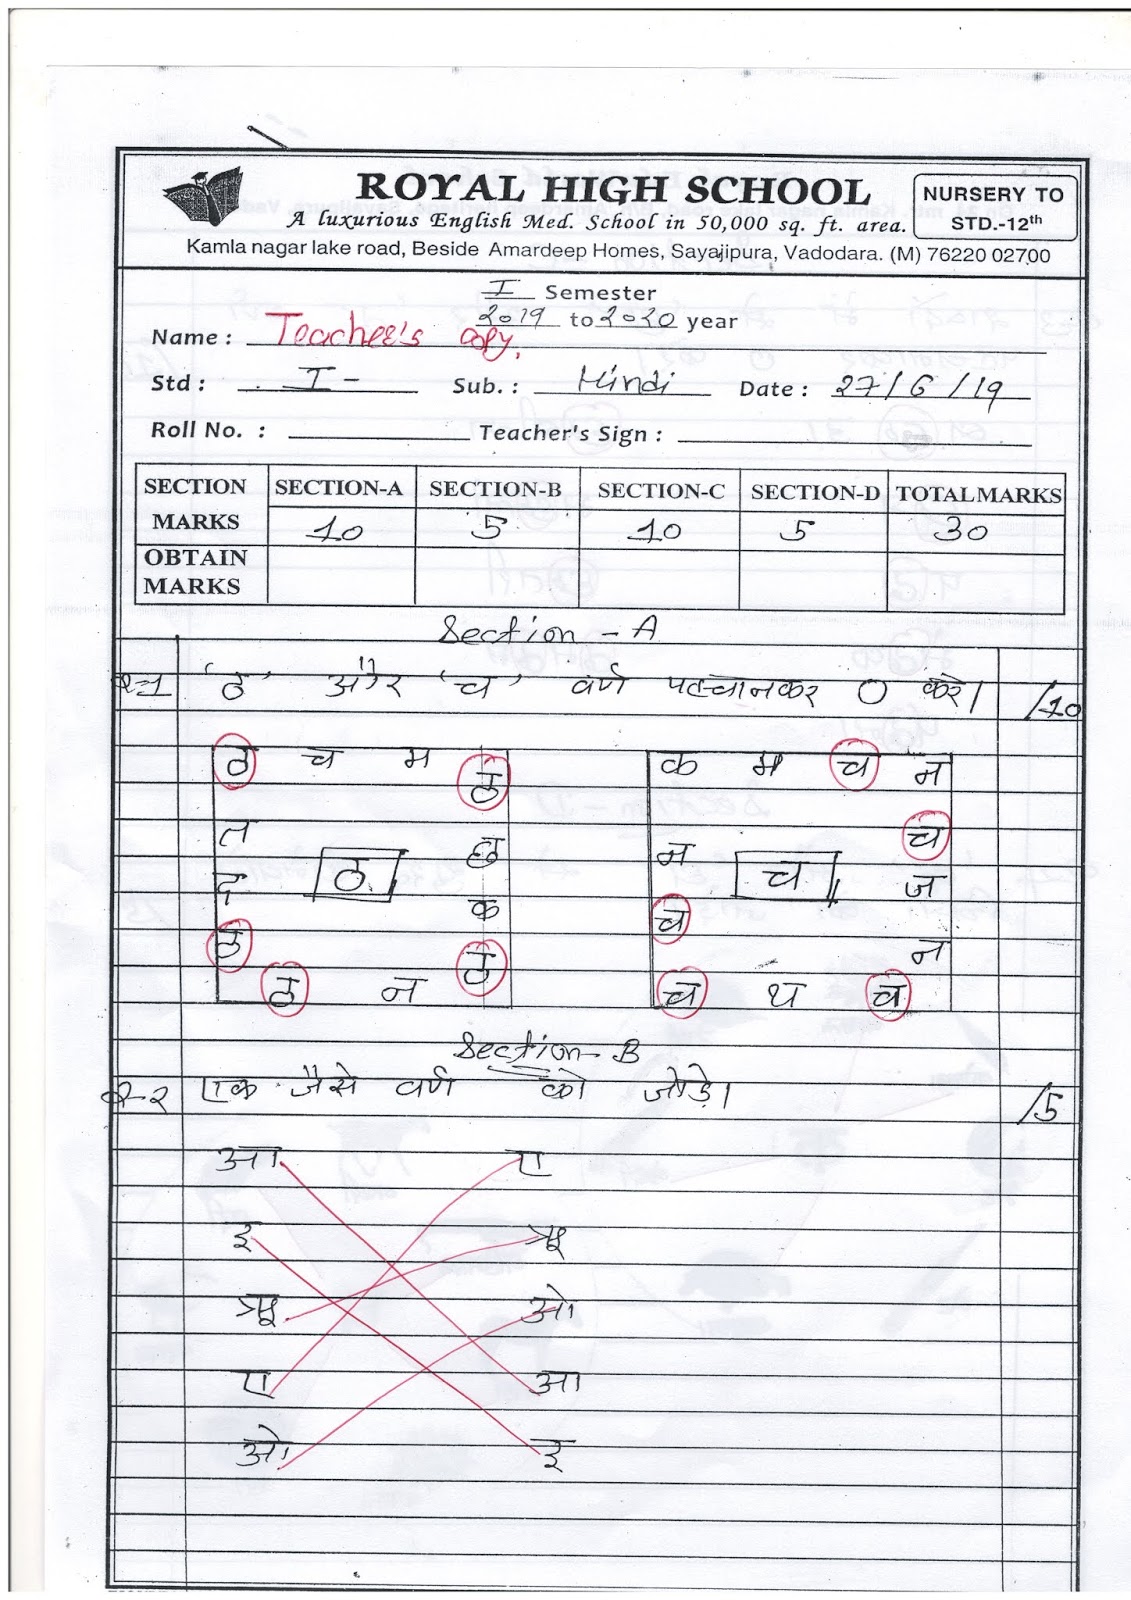 ROYAL HIGH SCHOOL
A luxurious English Med. School in 50,000 sq. ft. area.
NURSERY TO
STD.-12th
Kamla nagar lake road, Beside Amardeep Homes, Sayajipura, Vadodara. (M) 76220 02700
I Semester
2019 to 2020 year
Name : Teacher's copy.
Std : I - Sub. : Hindi Date : 27/6/19
Roll No. : Teacher's Sign :
SECTION MARKS SECTION-A SECTION-B SECTION-C SECTION-D TOTAL MARKS
10 5 10 5 30
OBTAIN MARKS
Section - A
प्र-1 'ठ' और 'च' वर्ण पहचानकर O करे। /10
ठ च म ठ क म च न
त छ म च
ठ च
द क च ज
ठ ठ न
ठ न च थ च
Section- B
प्र-२ एक जैसे वर्ण को जोड़े। /5
आ ए
इ ऋ
ऋ ओ
ए आ
ओ इ